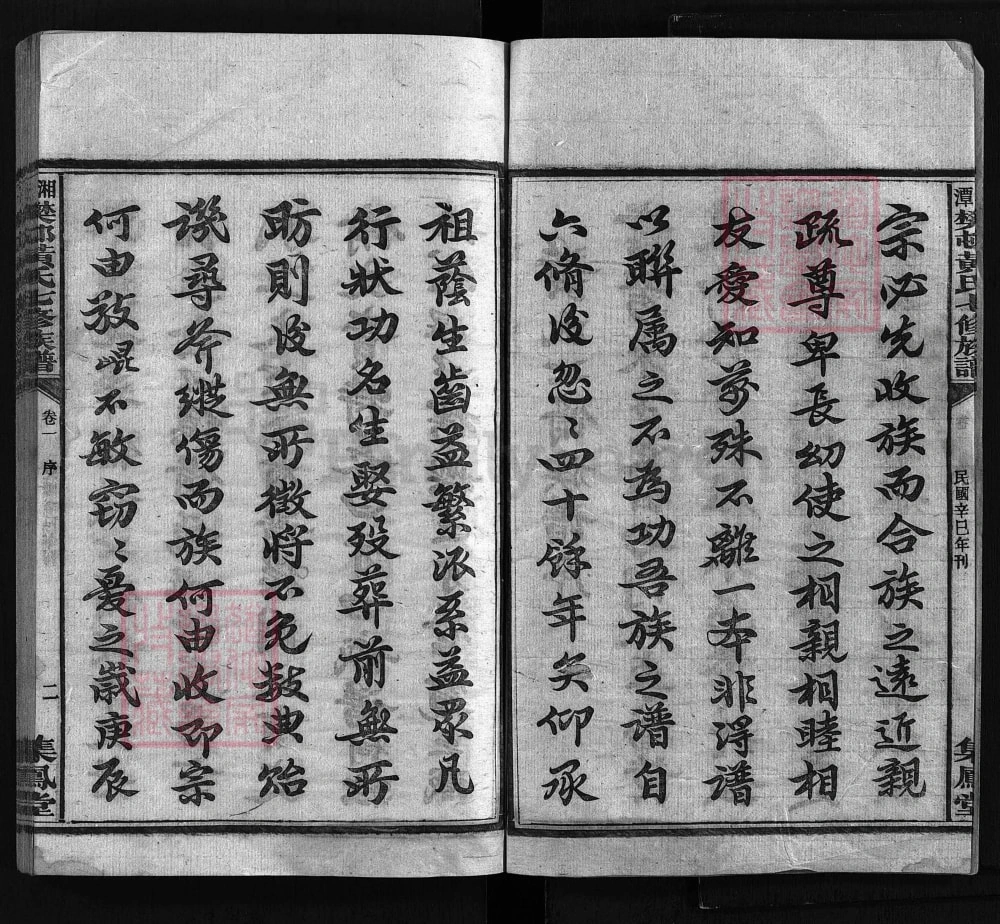 潭樊邨黃氏七修族譜
民國辛巳年刊
集鳳堂
宗必先收族而合族之遠近親
疏尊卑長幼使之相親相睦相
友愛知萬殊不離一本非得譜
以聯属之不為功吾族之譜自
六脩後忽〻四十餘年矣仰承
祖蔭生齒益繁派系益眾凡
行狀功名生娶殁葬前無所
昉則後無所徵將不免數典貽
譏尋斧縱傷而族何由收即宗
何由敬崐不敏竊〻憂之歲庚辰
湘樊邨黃氏七修族譜
卷一
序
二
集鳳堂